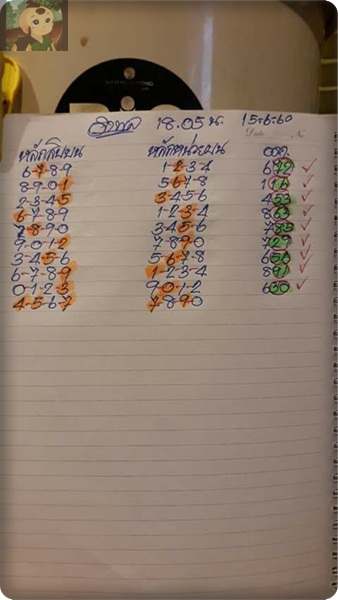 18.05 น 15-6-60
Date No
หลักสิบบน หลักหน่วยบน ออก
6-7-8-9 1-2-3-4 672 ✓
8-9-0-1 5-6-7-8 116 ✓
2-3-4-5 3-4-5-6 453 ✓
6-7-8-9 1-2-3-4 863 ✓
7-8-9-0 3-4-5-6 785 ✓
9-0-1-2 7-8-9-0 729 ✓
3-4-5-6 5-6-7-8 656 ✓
6-7-8-9 1-2-3-4 891 ✓
0-1-2-3 9-0-1-2 630 ✓
4-5-6-7 7-8-9-0